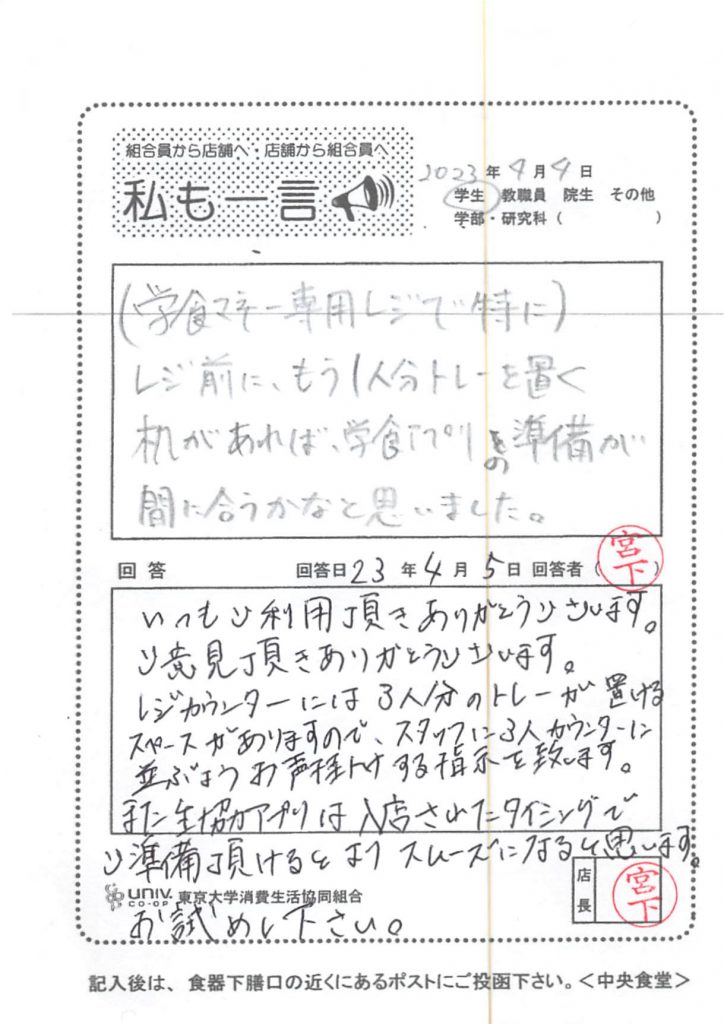 組合員から店舗へ・店舗から組合員へ
私も一言
2023年4月4日
学生 教職員 院生 その他
学部・研究科( )
(学食マネー専用レジで特に)
レジ前に、もう1人分トレーを置く
机があれば、学食アプリの準備が
間に合うかなと思いました。
回答 回答日23年4月5日 回答者(宮下)
いつもご利用頂きありがとうございます。
ご意見頂きありがとうございます。
レジカウンターには3人分のトレーが置ける
スペースがありますので、スタッフに3人カウンターに
並ぶようお声掛けする指示を致します。
また生協アプリは入店されたタイミングで
ご準備頂けるとよりスムーズになると思います。
UNIV. CO-OP 東京大学消費生活協同組合
店長 宮下
お試めし下さい。
記入後は、食器下膳口の近くにあるポストにご投函下さい。<中央食堂>